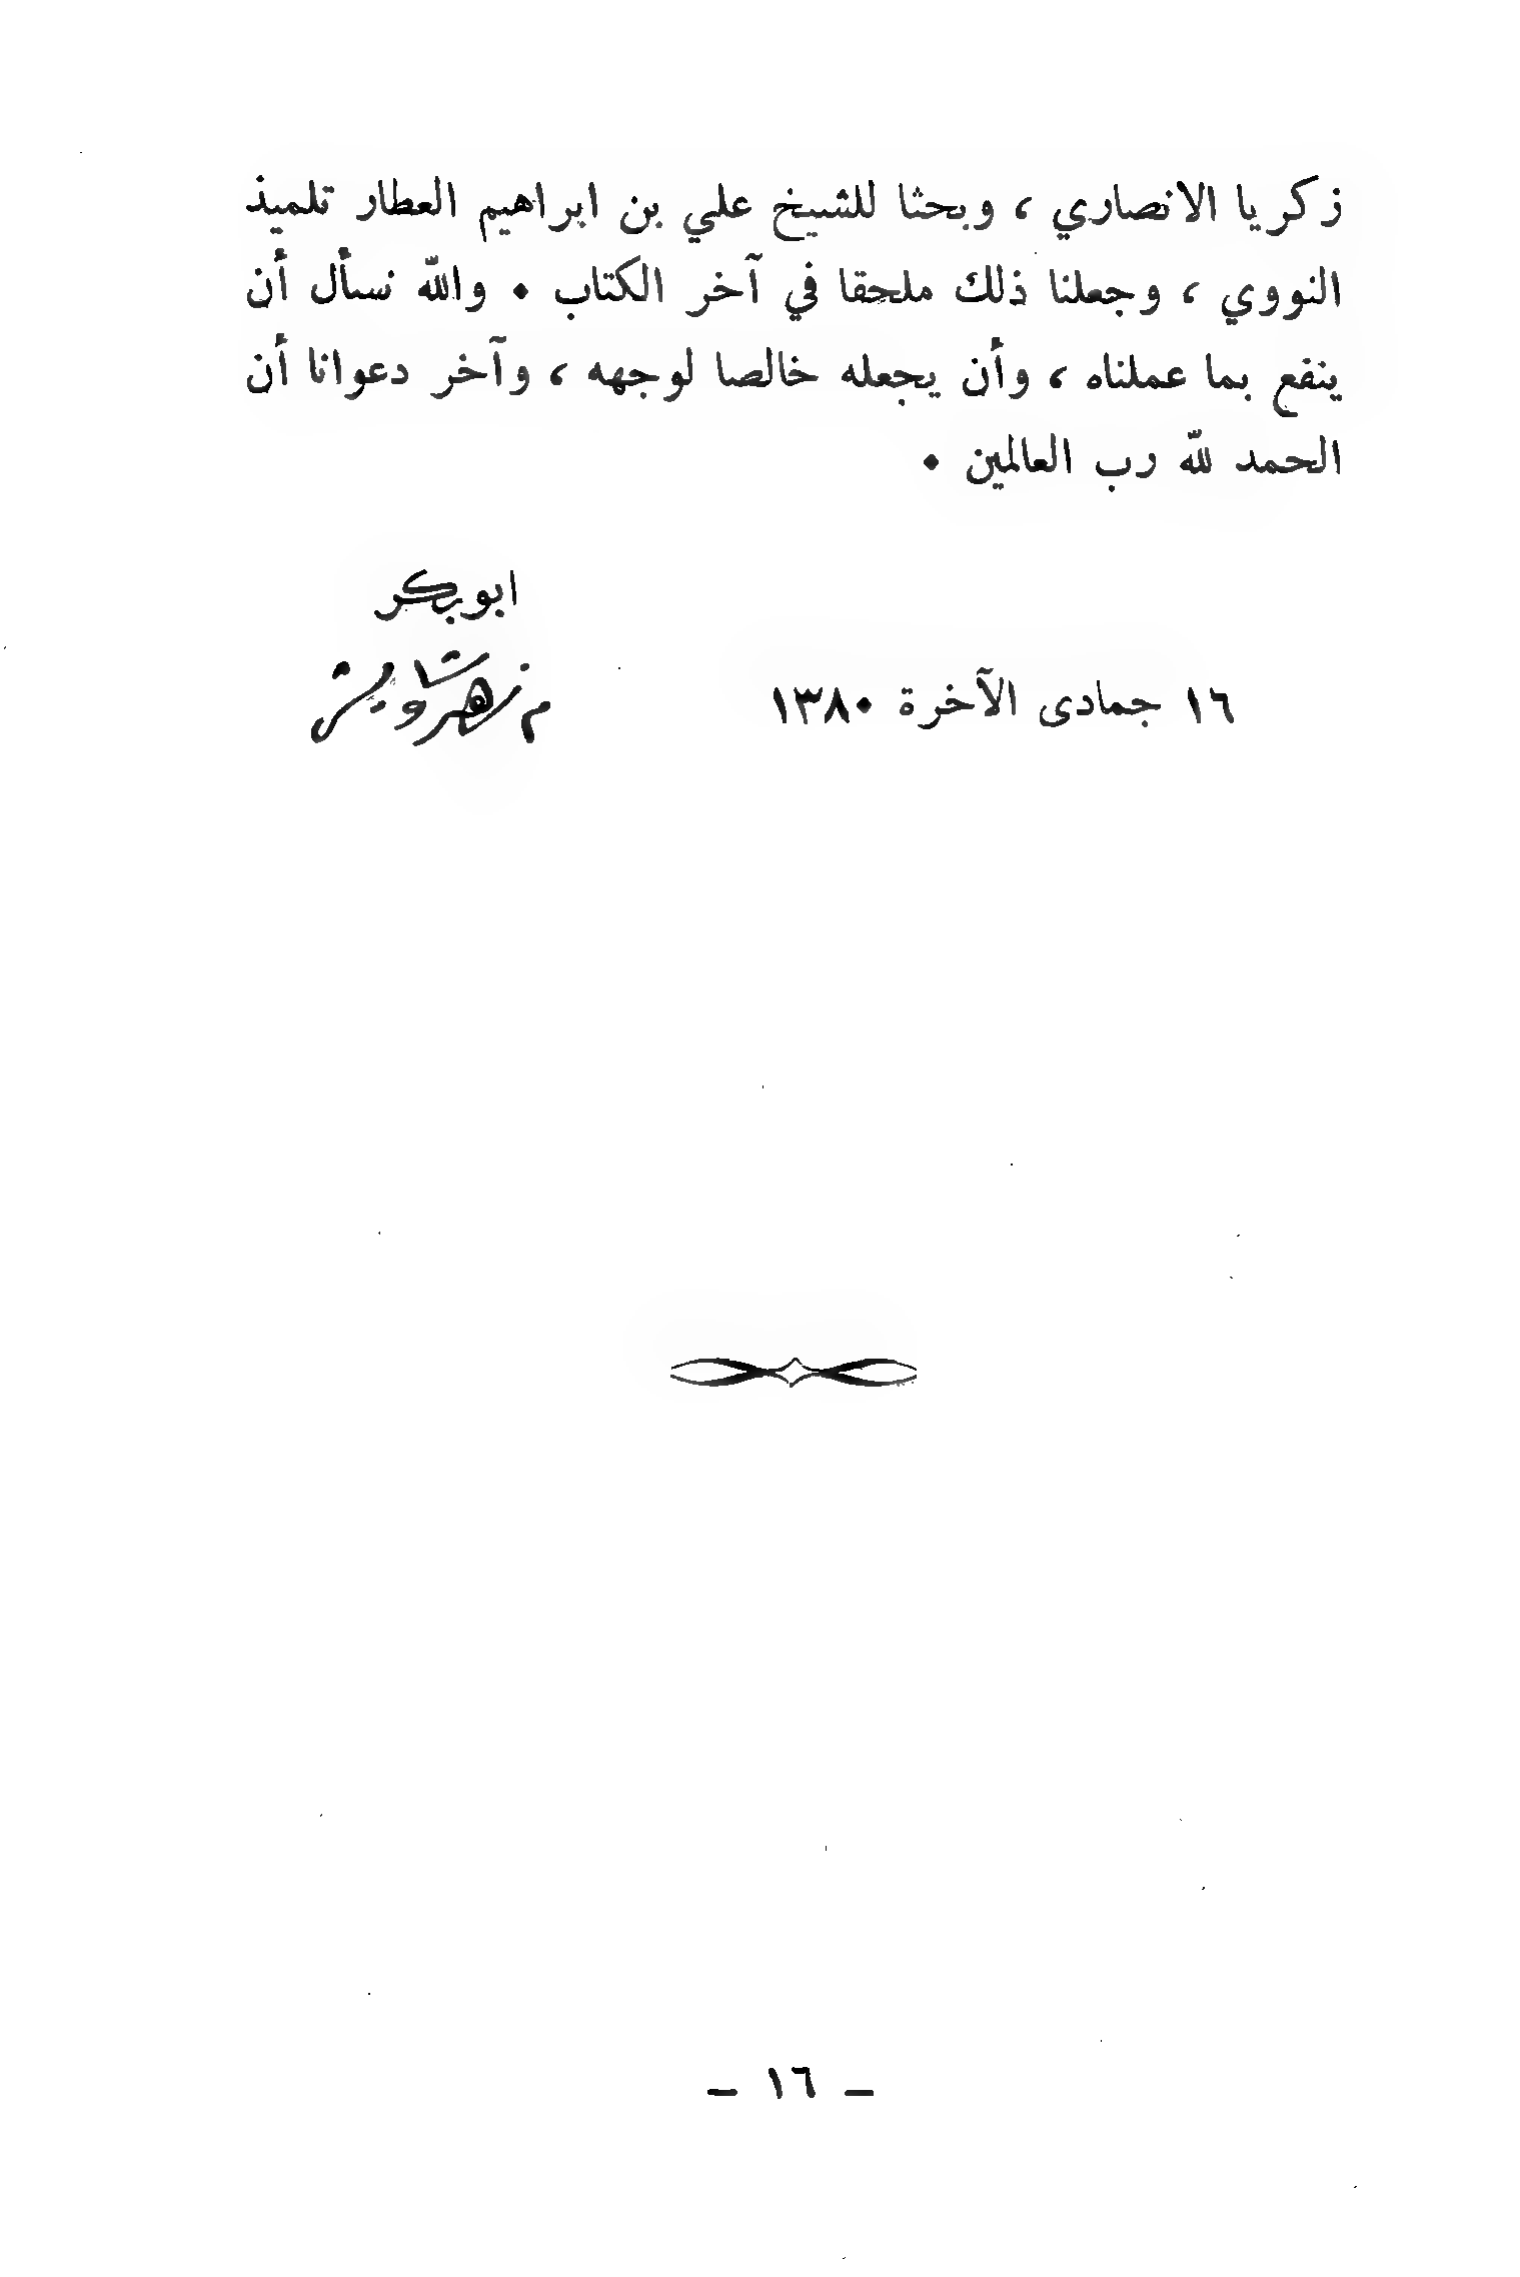 زكريا الانصاري ، وبحثا للشيخ علي بن ابراهيم العطار تلميذ
النووي ، وجعلنا ذلك ملحقا في آخر الكتاب . والله نسأل أن
ينفع بما عملناه ، وأن يجعله خالصا لوجهه ، وآخر دعوانا أن
الحمد لله رب العالمين .
ابوبكر
م زهر شاويش
١٦ جمادى الآخرة ١٣٨٠
ـ ١٦ ـ